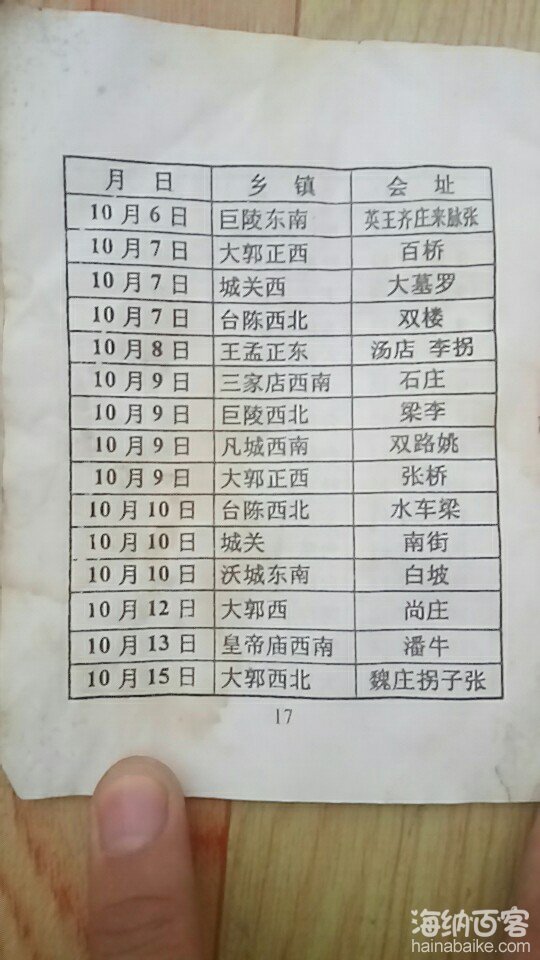 月 日 乡 镇 会 址
10月6日 巨陵东南 英王齐庄来脉张
10月7日 大郭正西 百桥
10月7日 城关西 大墓罗
10月7日 台陈西北 双楼
10月8日 王孟正东 汤店 李拐
10月9日 三家店西南 石庄
10月9日 巨陵西北 梁李
10月9日 凡城西南 双路姚
10月9日 大郭正西 张桥
10月10日 台陈西北 水车梁
10月10日 城关 南街
10月10日 沃城东南 白坡
10月12日 大郭西 尚庄
10月13日 皇帝庙西南 潘牛
10月15日 大郭西北 魏庄拐子张
17
海纳百客
hainabaike.com